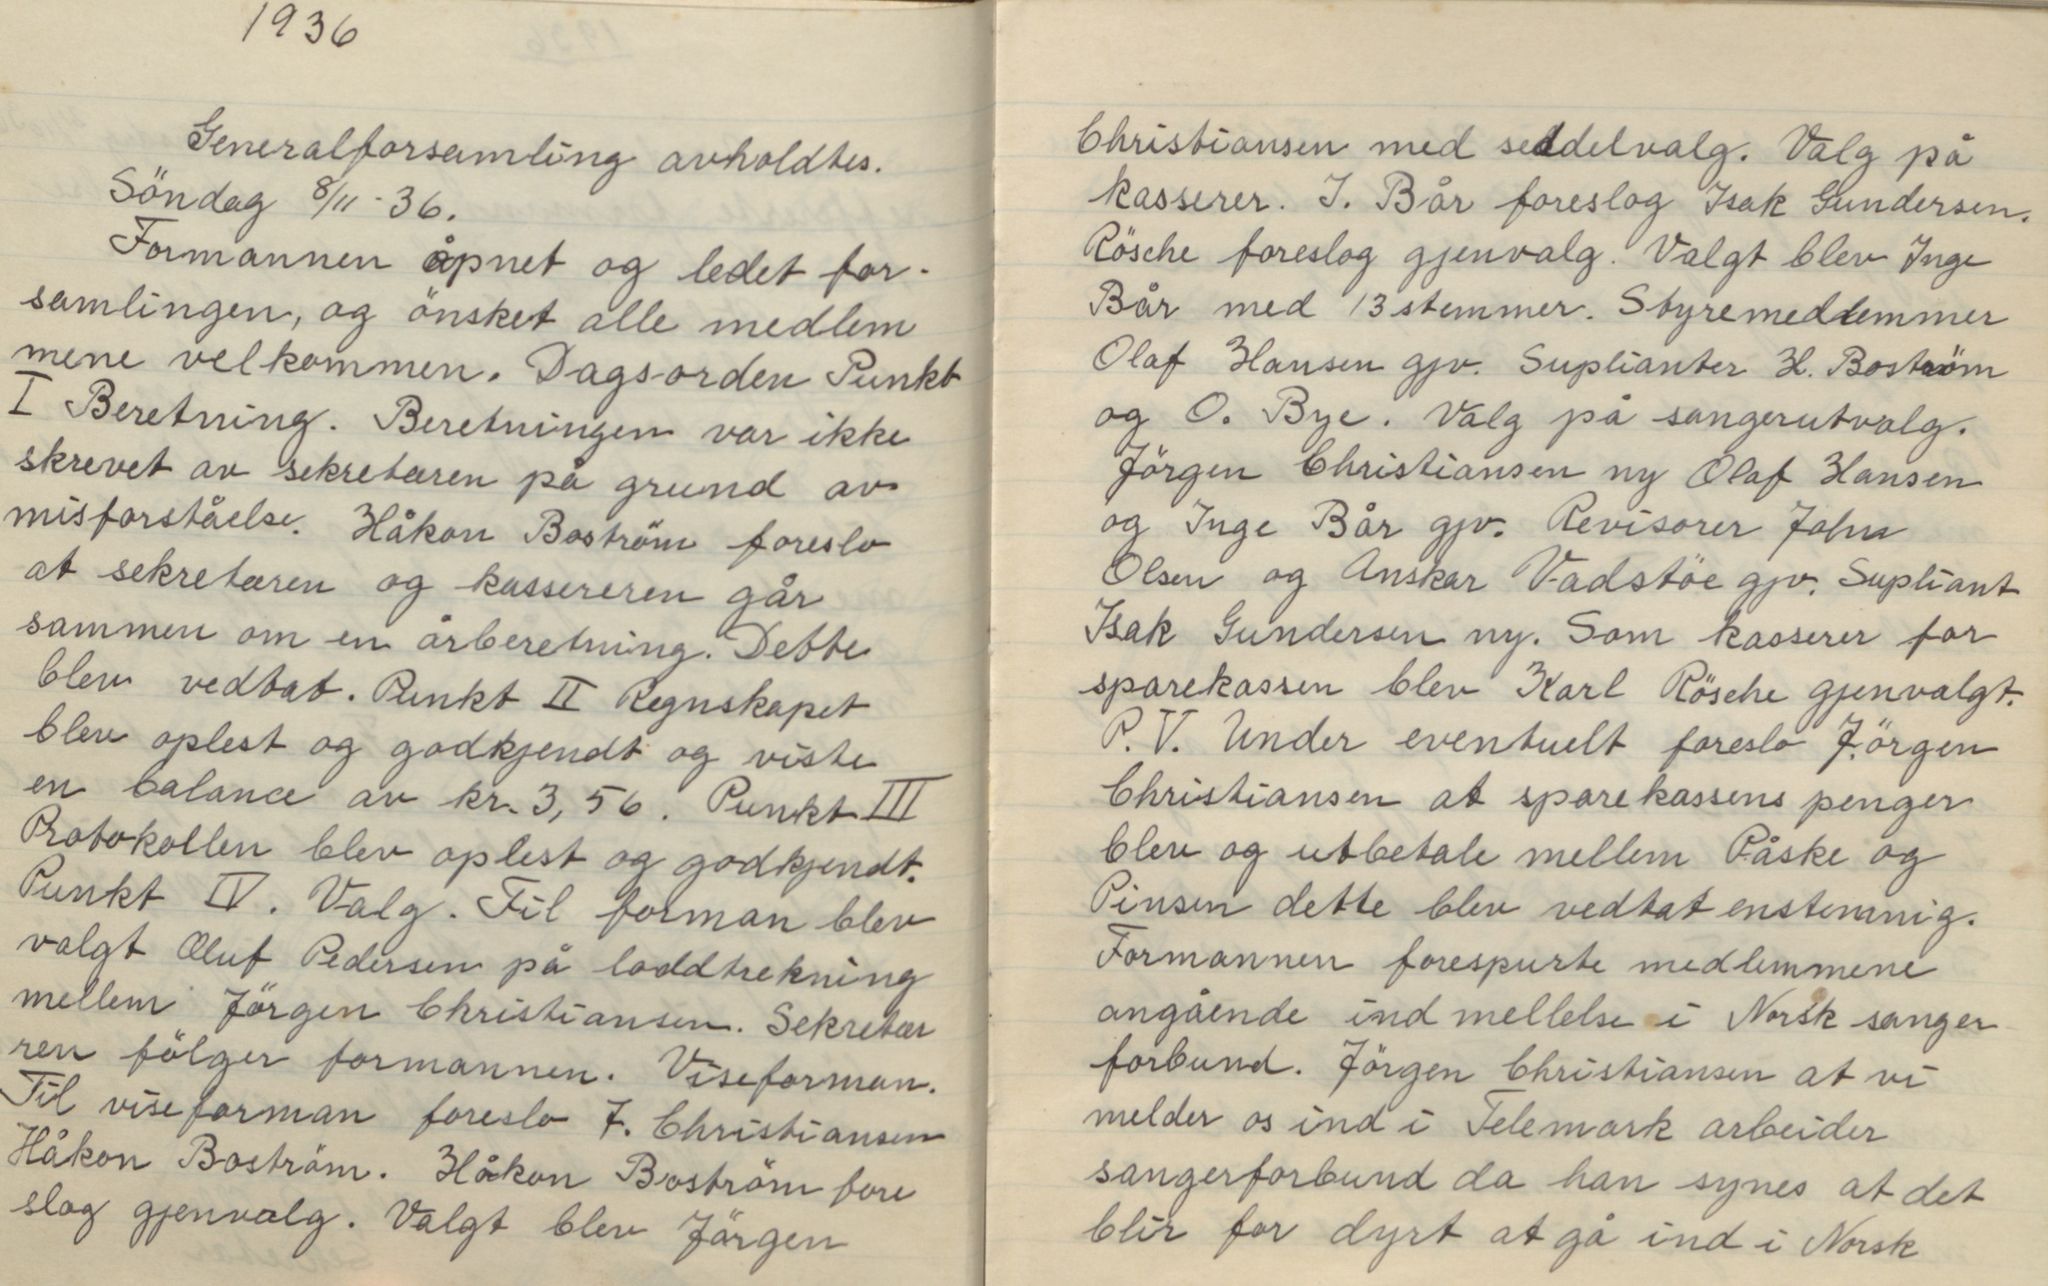 1936
Generalforsamling avholdtes.
Söndag 8/11-36.
Formannen åpnet og ledet for-
samlingen, og önsket alle medlem
mene velkommen. Dagsorden Punkt
I Beretning. Beretningen var ikke
skrevet av sekretæren på grund av
misforståelse. Håkon Boström foreslo
at sekretæren og kassereren går
sammen om en årberetning. Dette
blev vedtat. Punkt II Regnskapet
blev oplest og godkjendt og viste
en balance av kr. 3,56. Punkt III
Protokollen blev oplest og godkjendt.
Punkt IV. Valg. Til forman blev
valgt Oluf Pedersen på loddtrekning
mellem Jörgen Christiansen. Sekretær
ren fölger formannen. Viseforman.
Til viseforman foreslo J. Christiansen
Håkon Boström. Håkon Boström fore
slog gjenvalg. Valgt blev Jörgen
Christiansen med seddelvalg. Valg på
kasserer. I. Bår foreslog Isak Gundersen.
Rösche foreslog gjenvalg. Valgt blev Inge
Bår med 13 stemmer. Styremedlemmer
Olaf Hansen gjv. Suplianter H. Boström
og O. Bye. Valg på sangerutvalg.
Jörgen Christiansen ny Olaf Hansen
og Inge Bår gjv. Revisorer John
Olsen og Anskar Vadstöe gjv. Supliant
Isak Gundersen ny. Som kasserer for
sparekassen blev Karl Rösche gjenvalgt.
P. V. Under eventuelt foreslo Jörgen
Christiansen at sparekassens penger
blev og utbetale mellem Påske og
Pinsen dette blev vedtat enstemmig.
Formannen forespurte medlemmene
angående ind mellelse i Norsk sanger
forbund. Jörgen Christiansen at vi
melder os ind i Telemark arbeider
sangerforbund da han synes at det
blir for dyrt at gå ind i Norsk